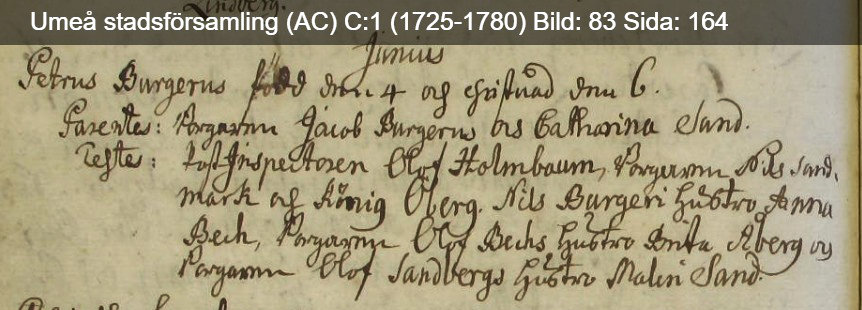 Umeå stadsförsamling (AC) C:1 (1725-1780) Bild: 83 Sida: 164
Lindberg.
Junius
Petrus Burgerus född den 4 och christnad den 6.
Parentes: Borgaren Jacob Burgerus och Catharina Sand.
Testes: Post Inspectoren Olof Holmbaum, Borgaren Nils Sand-
mark och König Öberg. Nils Burgeri Hustro Anna
Bech, Borgaren Olof Bechs Hustro Brita Åberg och
Borgaren Olof Sandbergs Hustro Malin Sand.